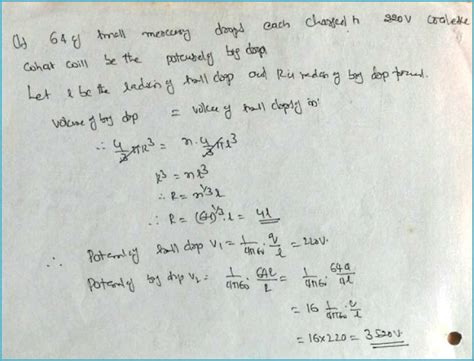 Q) 64 of small mercury drops each charged to 220V coalesce
what will be the potential of big drop
Let r be the radius of small drop and R is radius of big drop formed.
volume of big drop = volume of small drops
∴ 4/3 πR³ = n. 4/3 πr³
R³ = nr³
∴ R = n^1/3 r
∴ R = (64)^1/3 . r = 4r
∴ Potential of small drop V₁ = 1/4πε₀ . q/r = 220V.
Potential of big drop V₂ = 1/4πε₀ . 64q/R = 1/4πε₀ . 64q/4r
= 16 1/4πε₀ . q/r
= 16×220 = 3520V.